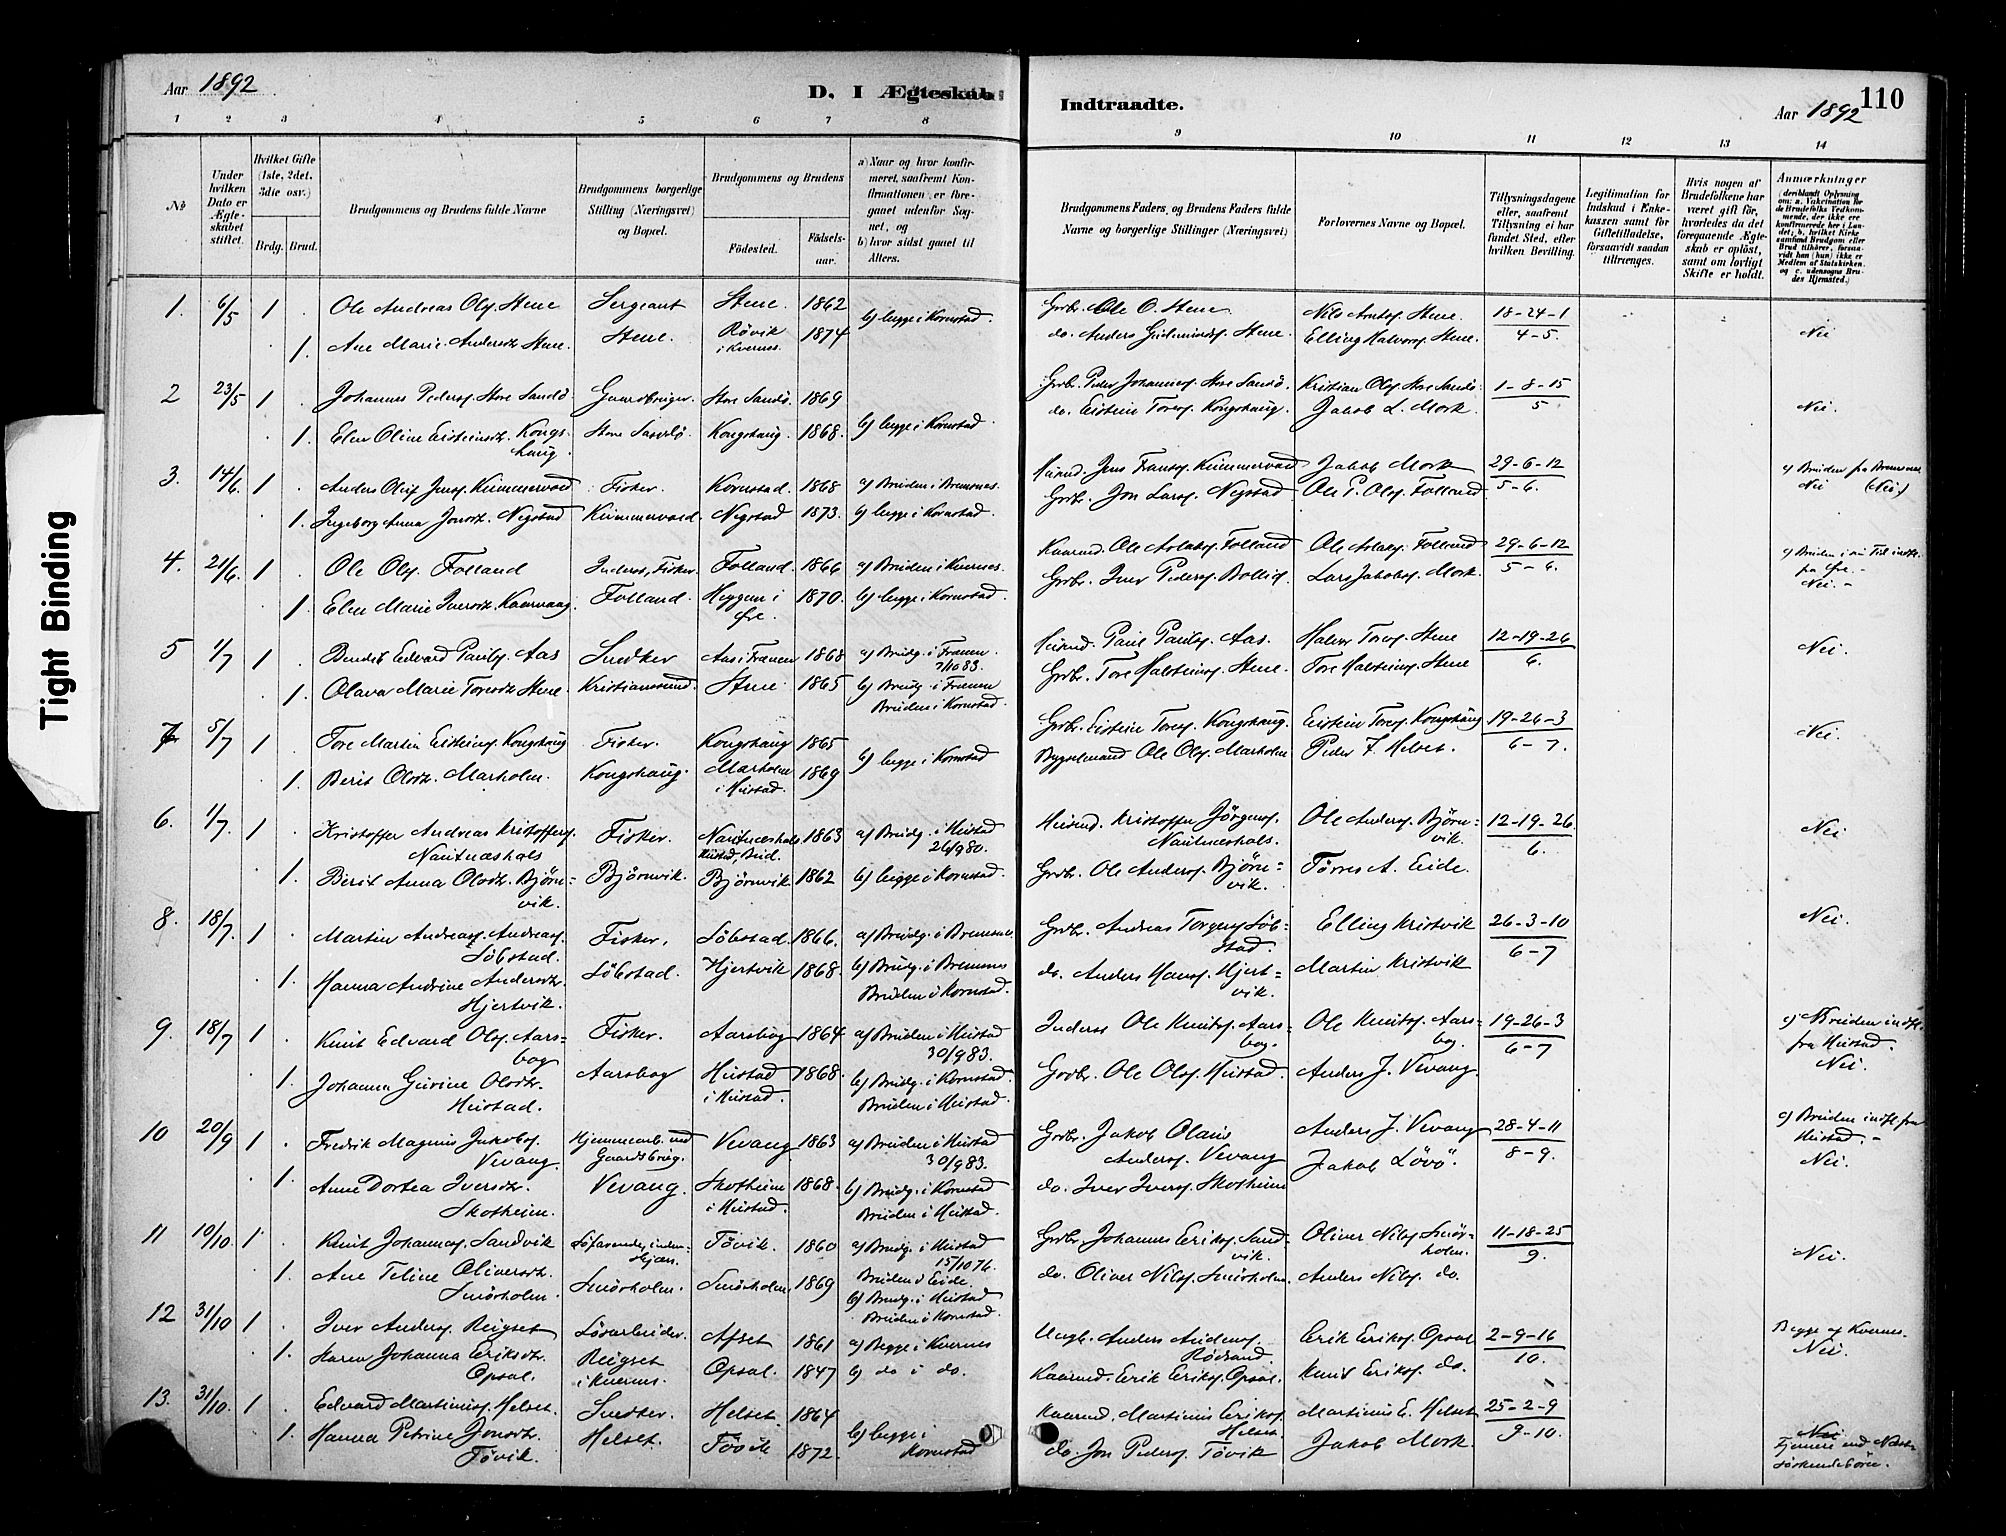 Tight Binding
Aar 1892
D. I Ægteskab
Indtraadte.
Aar 1892
110
1 2 3 4 5 6 7 8
9 10 11 12 13 14
№
Under hvilken Dato er Ægteskabet stiftet.
Hvilket Gifte (1ste, 2det, 3die osv.)
Brdg. Brud.
Brudgommens og Brudens fulde Navne
Brudgommens borgerlige Stilling (Næringsvei) og Bopæl.
Brudgommens og Brudens
Fødested. Fødselsaar.
a) Naar og hvor konfirmeret, saafremt Konfirmationen er foregaaet udenfor Sognet, og
b) hvor sidst gaaet til Alters.
Brudgommens Faders og Brudens Faders fulde Navne og borgerlige Stillinger (Næringsvei)
Forlovernes Navne og Bopæl.
Tillysningsdagene eller, saafremt Tillysning ei har fundet Sted, efter hvilken Bevilling.
Legitimation for Indskud i Enkekassen samt for Giftetilladelse, forsaavidt saadan tiltrænges.
Hvis nogen af Brudefolkene har været gift før, hvorledes da det foregaaende Ægteskab er opløst, samt om lovligt Skifte er holdt.
Anmærkninger (deriblandt Oplysning om: a. Vakcination for de Brudefolks Vedkommende, der ikke ere konfirmerede her i Landet; b. hvilket Kirkesamfund Brudgom eller Brud tilhører, forsaavidt han (hun) ikke er Medlem af Statskirken. og c. udensogns Brudes Hjemsted.)
1. 6/5 1 . Ole Andreas Ols. Stene Sergeant Stene. 1862 b) begge i Kornstad. Grdbr. Ole O. Stene Nils Arntsen Stene. 18-24-1
1. Ane Marie Andersdt. Stene. Stene. Røvik i Kvernes. 1874 do. Anders Gudmunds. Stene. Elling Halvors. Stene. 4-5. Nei
2 23/5 1 . Johannes Peders. Store Sandø Gaardbruger. Store Sandø. 1869 Grdbr. Peder Johannes. Store Sandø. Kristian Ols. Store Sandø. 1-8-15
1. Elen Oline Eisteinsdt. Kongshaug. Store Sandø Kongshaug. 1868. b) begge i Kornstad do. Eistein Tores. Kongshaug. Jakob L. Mork. 5 Nei.
3. 14/6. 1 . Anders Oluf Jens. Kummervold Fisker. Kornstad. 1868 a) Bruden i Bremsnes. Husmd. Jens Frants. Kummervold Jakob Mork 29-6-12 c) Bruden fra Bremsnes
1. Ingeborg Anna Jonsdt. Negstad Kummervold. Negstad 1873. b) begge i Kornstad. Grdbr. Jon Lars. Negstad Ole P. Ols. Folland 5-6. Nei (Nei)
4. 21/6. 1 . Ole Ols. Folland Inderst, Fisker. Folland. 1866 a) Bruden i Kvernes. Kaarmd. Ole Aslaks. Folland Ole Aslaks. Folland 29-6-12
1. Elen Marie Iversdt. Kaarvaag. Folland. Heggem i Øre. 1870. b) begge i Kornstad. Grdbr. Iver Peders. Bollid. Lars Jakobs. Mork. 5-6. fra Øre. Nei.
5 1/7 1 . Bendik Edvard Pauls. Aas Snedker Aas i Frænen 1868 a) Brudg. i Frænen 7/10 83. Husmd. Paul Pauls. Aas. Halvor Tores. Stene 12-19-26
1. Olava Marie Toresdt. Stene. Kristiansund. Stene 1865 b) Brudg. i Frænen Bruden i Kornstad. Grdbr. Tore Halsteins. Stene. Tore Halsteins. Stene 6. Nei.
7 5/7 1 . Tore Martin Eisteins. Kongshaug Fisker. Kongshaug 1865 Grdbr. Eistein Tores. Kongshaug. Eistein Tores. Kongshaug 19-26-3
1. Berit Olsdt. Marholm. Kongshaug. Marholm i Hustad. 1869 b) begge i Kornstad Bygselmand Ole Ols. Marholm Peder J. Helset. 6-7. Nei.
6. 1/7. 1 . Kristoffer Andreas Kristoffers. Nautneshals Fisker. Nautneshals Hustad, Bud. 1863 a) Brudg. i Hustad 26/9 80. Husmd. Kristoffer Jørgens. Nautneshals. Ole Anders. Bjørnvik. 12-19-26
1. Berit Anna Olsdt. Bjørnvik. Bjørnvik. Bjørnvik 1862 b) begge i Kornstad. Grdbr. Ole Anders. Bjørnvik. Tørres A. Eide. 6. Nei
8. 18/7. 1 . Martin Andreas. Andreas. Løbstad. Fisker. Løbstad. 1866. a) Brudg. i Bremsnes. Grdbr. Andreas Torgers. Løbstad. Elling Kristvik 26-3-10
1. Hanna Andrine Andersdt. Hjertvik. Løbstad. Hjertvik 1868. b) Brudg. i Bremsnes Bruden i Kornstad. do. Anders Hans. Hjertvik. Martin Kristvik 6-7 Nei.
9. 18/7 1 . Knut Edvard Ols. Aarsbog Fisker. Aarsbog 1864 a) Bruden i Hustad 30/9 83. Inderst Ole Knuts. Aarsbog. Ole Knuts. Aarsbog. 19-26-3 c) Bruden indfl. fra Hustad.
1. Johanna Gurine Olsdt. Hustad. Aarsbog Hustad i Hustad. 1868. b) Brudg. i Kornstad. Bruden i Hustad. Grdbr. Ole Ols. Hustad. Anders J. Vevang. 6-7 Nei.
10 20/9 1 . Fredrik Magnus Jakobs. Vevang. Hjemmearb. ved Gaardsbrug. Vevang 1863 a) Bruden i Hustad 30/9 83. Grdbr. Jakob Olaus Anders. Vevang Anders J. Vevang 28-4-11 c) Bruden indfl. fra Hustad.
1. Anne Dortea Iversdt. Skotheim. Vevang. Skotheim i Hustad. 1868. b) Brudg. i Kornstad Bruden i Hustad. do. Iver Ivers. Skotheim Jakob Løvø. 8-9. Nei.
11 10/10. 1 . Knut Johannes. Sandvik Søfarende, indenskjærs. Tøvik. 1860 a) Brudg. i Hustad 15/10 76. Bruden i Eide. Grdbr. Johannes Eriks. Sandvik. Oliver Nils. Smørholm. 11-18-25
1. Ane Teline Oliversdt. Smørholm. Smørholm. Smørholm. 1869 b) Brudg. i Hustad Bruden i Kornstad. do. Oliver Nils. Smørholm. Anders Nils. do. 9. Nei.
12 31/10 1 . Iver Anders. Reigset Løsarbeider. Afset 1861 a) Begge i Kvernes Anders Anders. Rødsand. Erik Eriks. Opsal 2-9-16 Begge af Kvernes.
1. Karen Johanna Eriksdt. Opsal. Reigset i Kvernes. Opsal. 1847 b) do i do. Kaarmd. Erik Eriks. Opsal. Knut Eriks. do. 10. Nei.
13. 31/10. 1 . Edvard Martinus. Helset. Snedker. Helset. 1864 Kaarmd. Martinus Eriks. Helset. Martinus E. Helset 25-2-9
1. Hanna Petrine Jonsdt. Tøvik. Helset. Tøvik 1872. b) begge i Kornstad do. Jon Peders. Tøvik Jakob Mork. 9-10. Nei Fjernere end Næstsøskendebørn.